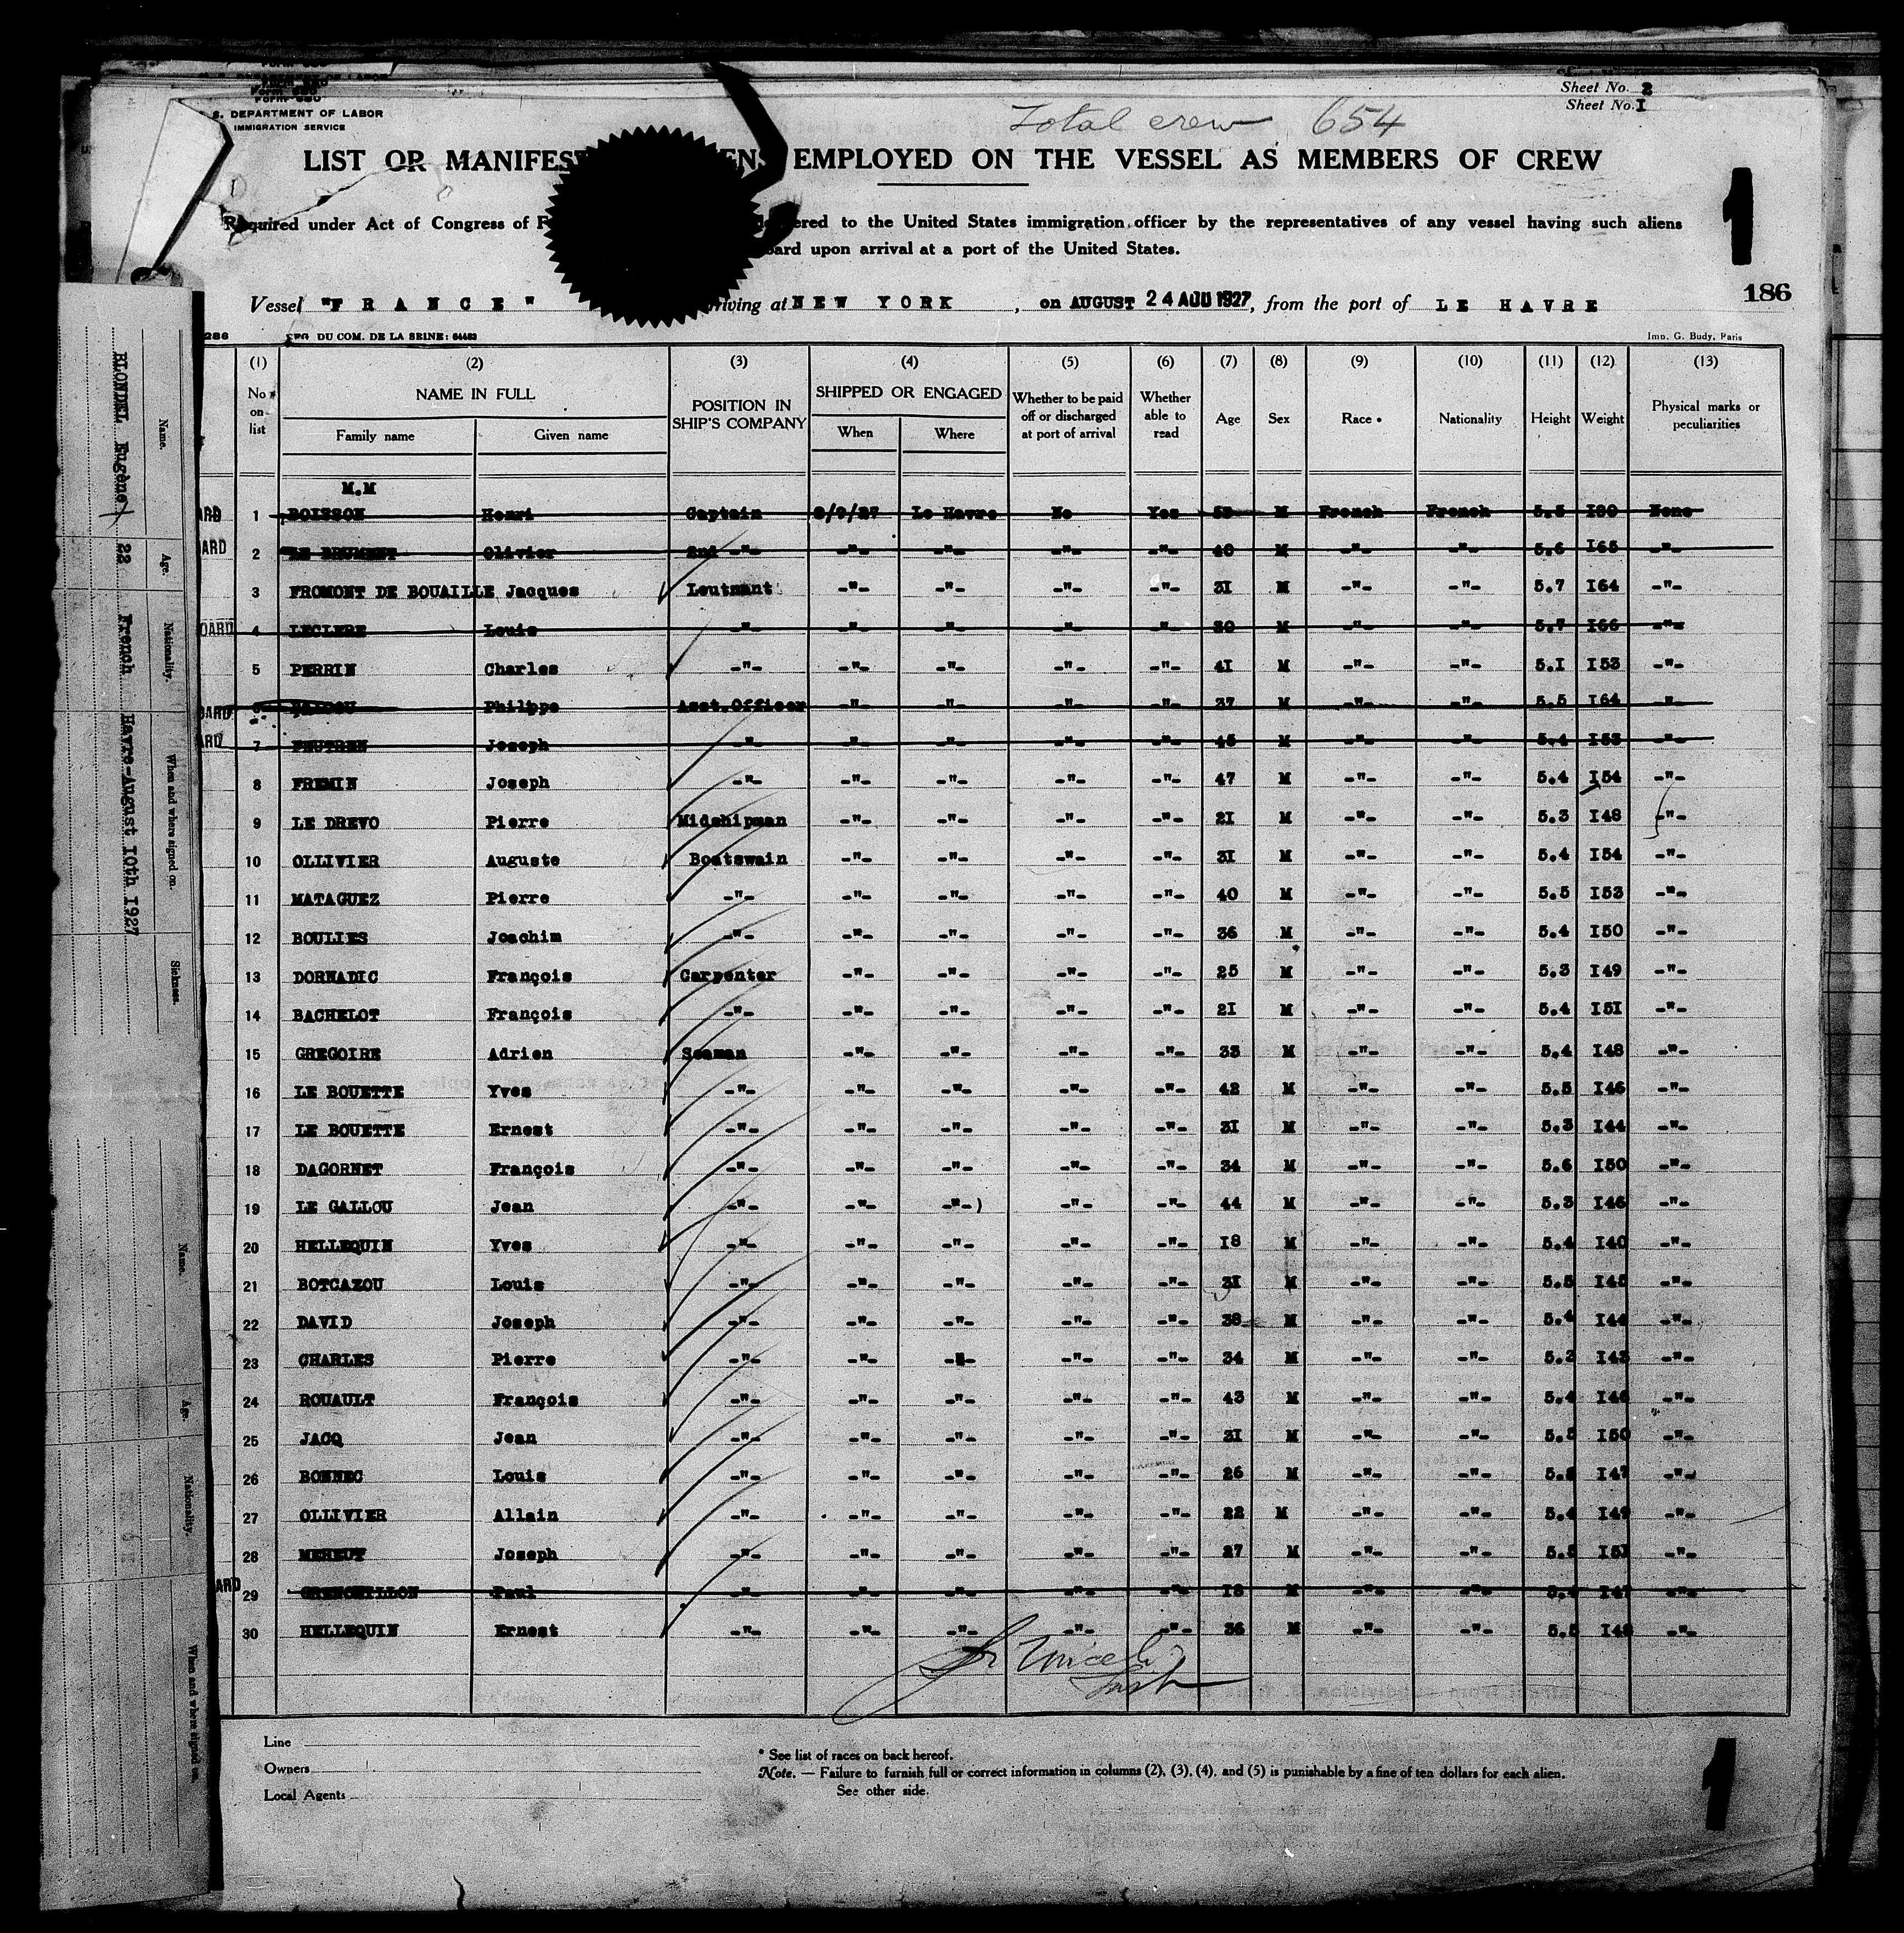 Form 680
S. DEPARTMENT OF LABOR
IMMIGRATION SERVICE
Sheet No. 2
Sheet No. I
Total crew 654
LIST OR MANIFES ENS EMPLOYED ON THE VESSEL AS MEMBERS OF CREW
1
Required under Act of Congress of F ered to the United States immigration officer by the representatives of any vessel having such aliens
oard upon arrival at a port of the United States.
186
Vessel "FRANCE" riving at NEW YORK, on AUGUST 24 AOU 1927, from the port of LE HAVRE
286 DU COM. DE LA SEINE: Imp. G. Budy, Paris
(1) (2) (3) (4) (5) (6) (7) (8) (9) (10) (11) (12) (13)
No. on list NAME IN FULL POSITION IN SHIP'S COMPANY SHIPPED OR ENGAGED Whether to be paid off or discharged at port of arrival Whether able to read Age Sex Race • Nationality Height Weight Physical marks or peculiarities
Family name Given name When Where
M.M
1 BOISSON Henri Captain 8/9/27 Le Havre No Yes M French French 5.5 I80 None
2 LE BRUMENT Olivier 2nd -"- -"- -"- -"- -"- 40 M -"- -"- 5.6 I65 -"-
3 FROMONT DE BOUAILLE Jacques Leutnant -"- -"- -"- -"- 3I M -"- -"- 5.7 I64 -"-
4 LECLERE Louis -"- -"- -"- -"- -"- 30 M -"- -"- 5.7 I66 -"-
5 PERRIN Charles -"- -"- -"- -"- -"- 4I M -"- -"- 5.I I53 -"-
6 Philippe Asst.Officer -"- -"- -"- -"- 37 M -"- -"- 5.5 I64 -"-
7 FEUTREN Joseph -"- -"- -"- -"- -"- 45 M -"- -"- 5.4 I53 -"-
8 FREMIN Joseph -"- -"- -"- -"- -"- 47 M -"- -"- 5.4 I54 -"-
9 LE DREVO Pierre Midshipman -"- -"- -"- -"- 2I M -"- -"- 5.3 I48 -"-
10 OLLIVIER Auguste Boatswain -"- -"- -"- -"- 3I M -"- -"- 5.4 I54 -"-
11 MATAGUEZ Pierre -"- -"- -"- -"- -"- 40 M -"- -"- 5.5 I53 -"-
12 BOULIES Joachim -"- -"- -"- -"- -"- 36 M -"- -"- 5.4 I50 -"-
13 DORNADIC François Carpenter -"- -"- -"- -"- 25 M -"- -"- 5.3 I49 -"-
14 BACHELOT François -"- -"- -"- -"- -"- 2I M -"- -"- 5.4 I5I -"-
15 GREGOIRE Adrien Seaman -"- -"- -"- -"- 33 M -"- -"- 5.4 I48 -"-
16 LE BOUETTE Yves -"- -"- -"- -"- -"- 42 M -"- -"- 5.5 I46 -"-
17 LE BOUETTE Ernest -"- -"- -"- -"- -"- 3I M -"- -"- 5.3 I44 -"-
18 DAGORNET François -"- -"- -"- -"- -"- 34 M -"- -"- 5.6 I50 -"-
19 LE GALLOU Jean -"- -"- -"- ) -"- -"- 44 M -"- -"- 5.3 I46 -"-
20 HELLEQUIN Yves -"- -"- -"- -"- -"- I8 M -"- -"- 5.4 I40 -"-
21 BOTCAZOU Louis -"- -"- -"- -"- -"- 3I M -"- -"- 5.5 I45 -"-
22 DAVID Joseph -"- -"- -"- -"- -"- 38 M -"- -"- 5.4 I44 -"-
23 CHARLES Pierre -"- -"- -"- -"- -"- 34 M -"- -"- 5.3 I43 -"-
24 ROUAULT François -"- -"- -"- -"- -"- 43 M -"- -"- 5.4 I46 -"-
25 JACQ Jean -"- -"- -"- -"- -"- 3I M -"- -"- 5.5 I50 -"-
26 BONNEC Louis -"- -"- -"- -"- -"- 26 M -"- -"- I47 -"-
27 OLLIVIER Allain -"- -"- -"- -"- -"- 22 M -"- -"- 5.4 I49 -"-
28 MEHEUT Joseph -"- -"- -"- -"- -"- 27 M -"- -"- 5.5 I5I -"-
29 Paul -"- -"- -"- -"- -"- I8 M -"- -"- 5.4 I47 -"-
30 HELLEQUIN Ernest -"- -"- -"- -"- -"- 36 M -"- -"- 5.5 I48 -"-
Line
Owners
Local Agents
* See list of races on back hereof.
Note. — Failure to furnish full or correct information in columns (2), (3), (4), and (5) is punishable by a fine of ten dollars for each alien.
See other side.
1
Name. Age. Nationality. When and where signed on. Sickness.
BLONDEL Eugène 22 French Havre-August IOth I927
Name. Age. Nationality. When and where signed on.